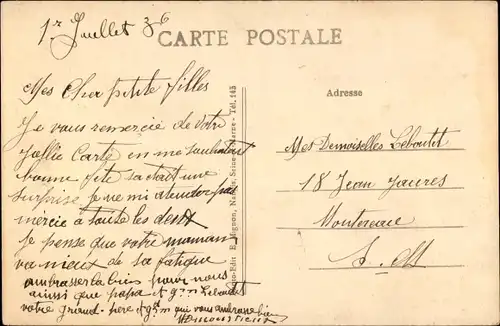 1r Juillet 36
CARTE POSTALE
Mes Cher petite filles
Je vous remercie de votre
Jollie Carte en me souhaitant
bonne fête sa était une
surprise je ne mi atendez pas
mercie a toute les deux
je pense que votre maman
va mieux de sa fatigue
ambrasser la bien pour nous
ainsi que papa
votre grand-père et qui vous ambrasse bien
Tél. 145
Adresse
Mes Demoiselles Leboutet
18 Jean Jaures
Montereau
S. M